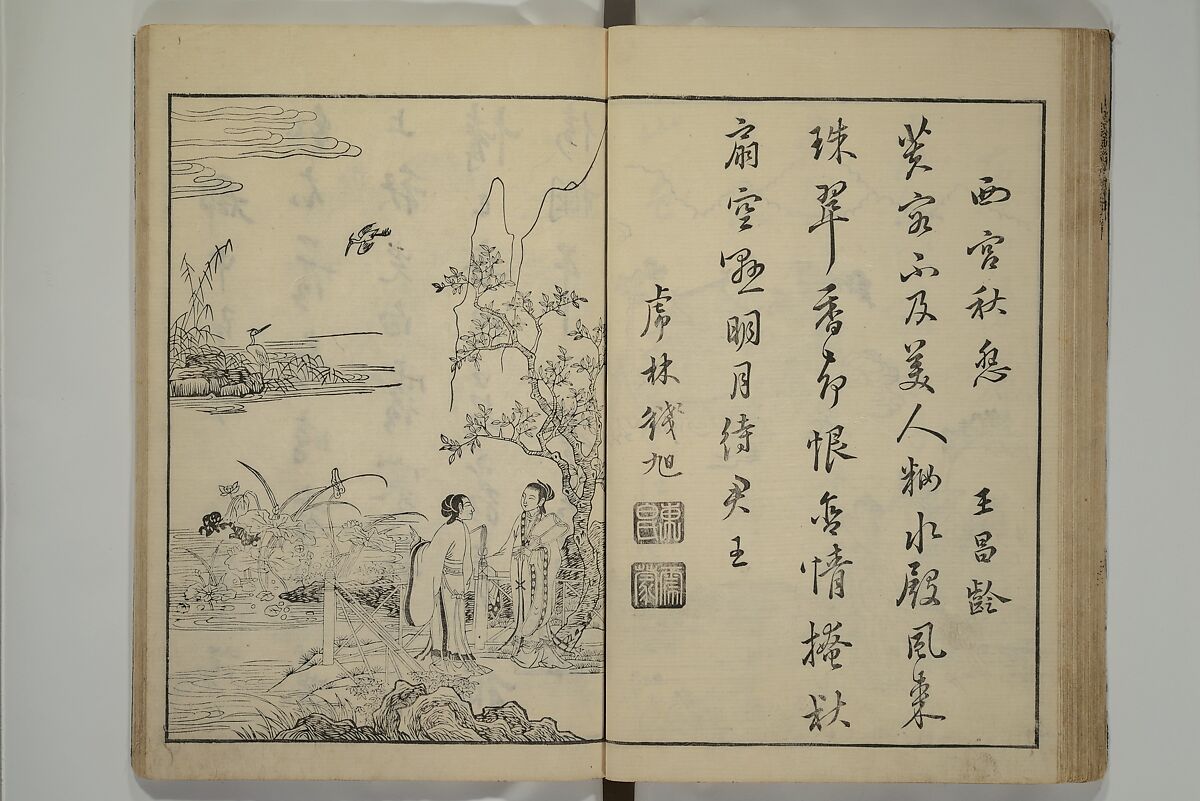 西宮秋怨 王昌齡
芙容不及美人粧水殿風來
珠翠香却恨含情掩秋
扇空懸明月待君王
虎林錢旭